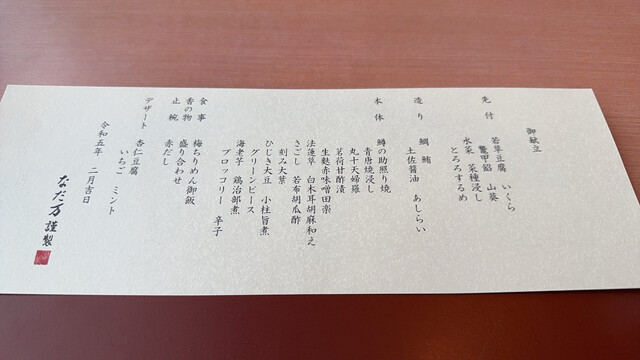 御献立
先付
若草豆腐 いくら
鼈甲餡 山葵
水菜 菜種浸し
とろろするめ
造り
鯛 鮪
土佐醤油 あしらい
本体
鱒の助照り焼
青唐焼浸し
丸十天婦羅
茗荷甘酢漬
生麩赤味噌田楽
法蓮草 白木耳胡麻和え
きごし 若布胡瓜酢
刻み大葉
ひじき大豆 小柱旨煮
グリーンピース
海老芋 鶏治部煮
ブロッコリー 辛子
食事
梅ちりめん御飯
香の物
盛り合わせ
止椀
赤だし
デザート
杏仁豆腐
いちご ミント
令和五年 二月吉日
なだ万謹製